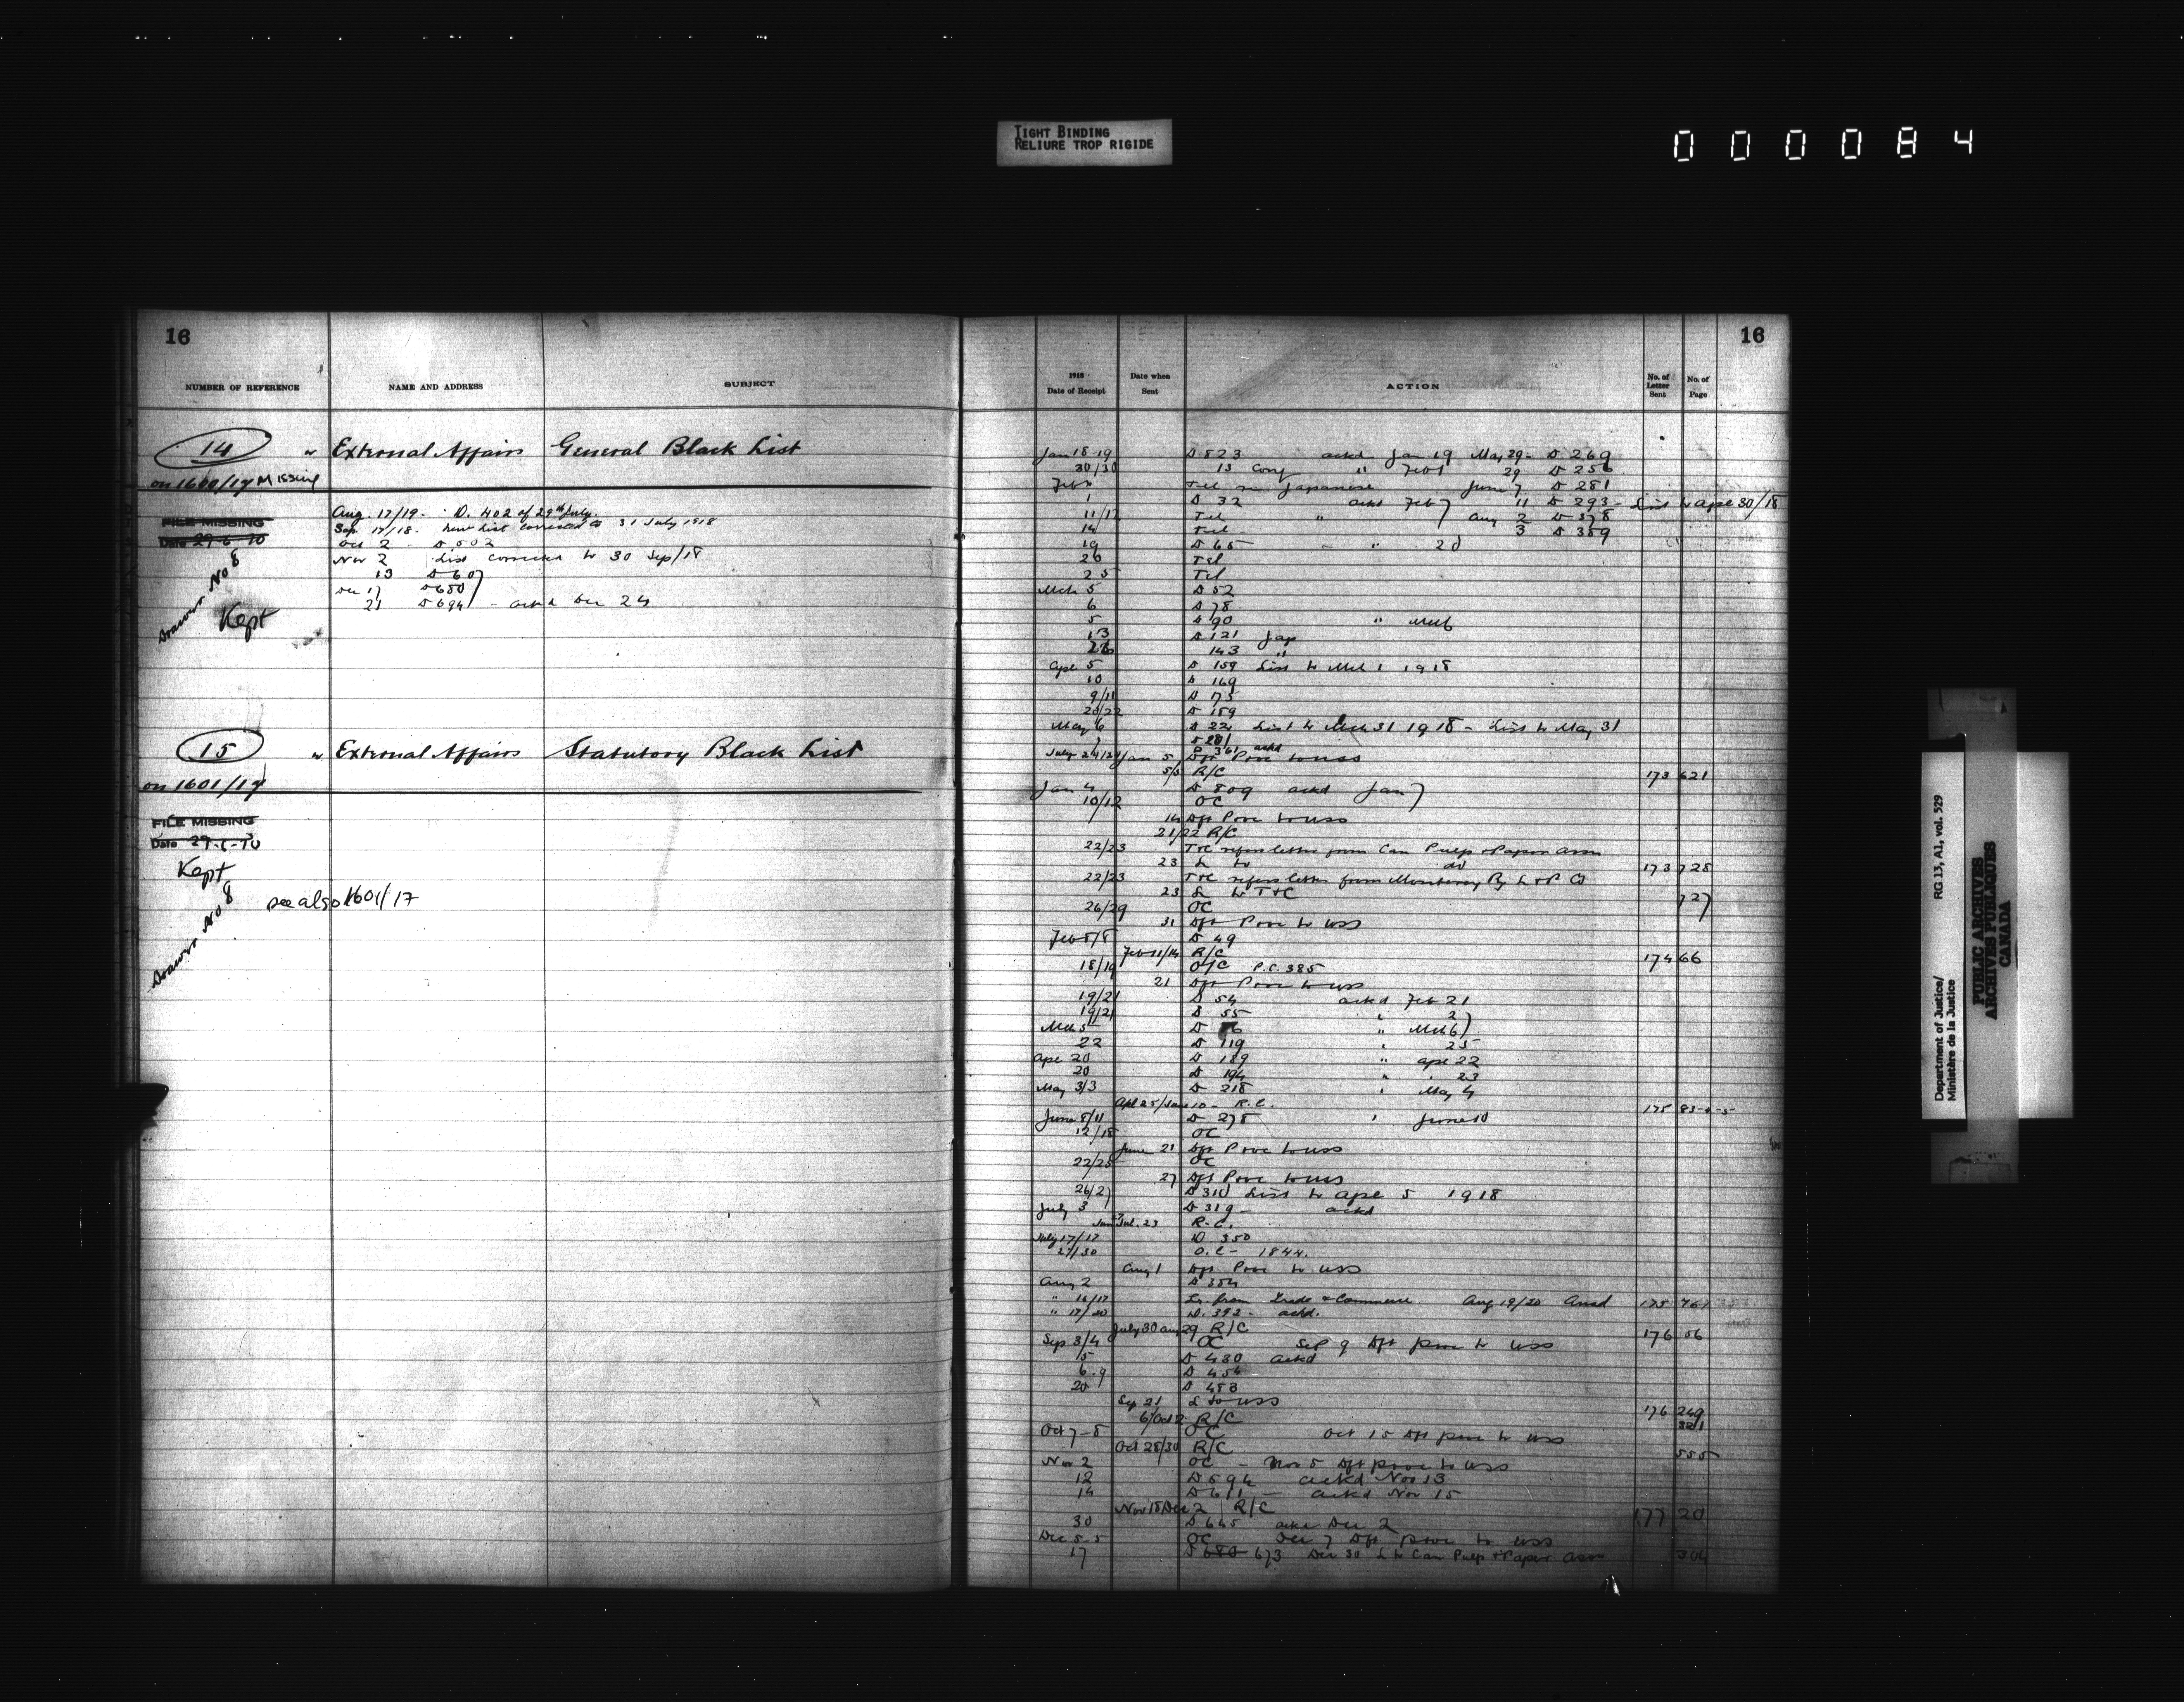 TIGHT BINDING
RELIURE TROP RIGIDE
000084
16
NUMBER OF REFERENCE NAME AND ADDRESS SUBJECT
14 " External Affairs General Black List
on 1600/17 Missing
FILE MISSING
Date 29-6-70
Drawer No 8
Kept
Aug. 17/19. D. 402 of 29th July.
Sep. 17/18. New List corrected to 31 July 1918
Oct 2 - D 502
Nov 2 List corrected to 30 Sep/18
13 D 607
Dec 17 D 680
21 D 694 - ackd Dec 24
15 " External Affairs Statutory Black List
on 1601/17
FILE MISSING
Date 29-6-70
Kept
Drawer No 8
see also 1601/17
16
1918 Date of Receipt Date when Sent ACTION No. of Letter Sent No. of Page
Jan 18-19 D 823 ackd Jan 19 May 29 - D 269
30/30 13 Conf " Feb 1 29 D 256
Feb Tel re Japanese June 7 D 281
1 D 32 ackd Feb 7 11 D 293 - List to Apl 30/18
11/12 Tel " Aug 2 D 378
14 Tel 3 D 359
19 D 65 - " 20
26 Tel
25 Tel
Mch 5 D 52
6 D 78
5 D 90 " Mch 6
13 D 121 Jap
26 143 "
Apl 5 D 159 List to Mch 1 1918
10 D 169
9/11 D 175
20/22 D 189
May 6 D 221 List to Mch 31 1918 - List to May 31
July 24/24 D 361 ackd
Jan 5 Dft Prov to USS
5/5 R/C 173 621
Jan 4 D 809 ackd Jan 7
10/12 OC
14 Dft Prov to USS
21/22 R/C
22/23 T&C refers letter from Can Pulp & Paper Assn
23 L to do 173 728
22/23 T&C refers letter from Monterey Ry L & P Co
23 L to T&C 727
26/29 OC
31 Dft Prov to USS
Feb 8/8 D 49
Feb 11/14 R/C 174 66
18/19 O/C P.C. 385
21 Dft Prov to USS
19/21 D 54 ackd Feb 21
19/21 D 55 " 27
Mch 5 D 6 " Mch 6
22 D 119 " 25
Apl 20 D 189 " Apl 22
20 D 194 " 23
May 3/3 D 218 " May 4
Apl 25/Jun 10 - R.C. 175 83-4-5
June 8/11 D 278 " June 10
12/18 OC
June 21 Dft Prov to USS
22/25 OC
27 Dft Prov to USS
26/27 D 310 List to Apl 5 1918
July 3 D 319 - ackd
Jul. 23 R.C.
July 17/17 D 350
27/30 O.C - 1844.
Aug 1 Dft Prov to USS
Aug 2 D 354
" 16/17 Lr. from Trade & Commerce. Aug 19/20 Ansd 175 767
" 17/20 D. 392 - ackd.
July 30 Aug 29 R/C 176 56
Sep 3/4 OC Sep 9 Dft prov to USS
5 D 430 ackd
6-9 D 454
20 D 483
Sep 21 L to USS 176 249
6/Oct 2 R/C 321
Oct 7-8 OC Oct 15 Dft prov to USS
Oct 25/30 R/C 555
Nov 2 OC - Nov 5 Dft prov to USS
12 D 594 ackd Nov 13
14 D 611 - ackd Nov 15
Nov 15 Dec 2 R/C 177 20
30 D 645 ackd Dec 2
Dec 5-5 OC Dec 7 Dft prov to USS
17 D 680 673 Dec 30 L to Can Pulp & Paper Assn
Department of Justice/
Ministère de la Justice
RG 13, A1, vol. 529
PUBLIC ARCHIVES
ARCHIVES PUBLIQUES
CANADA